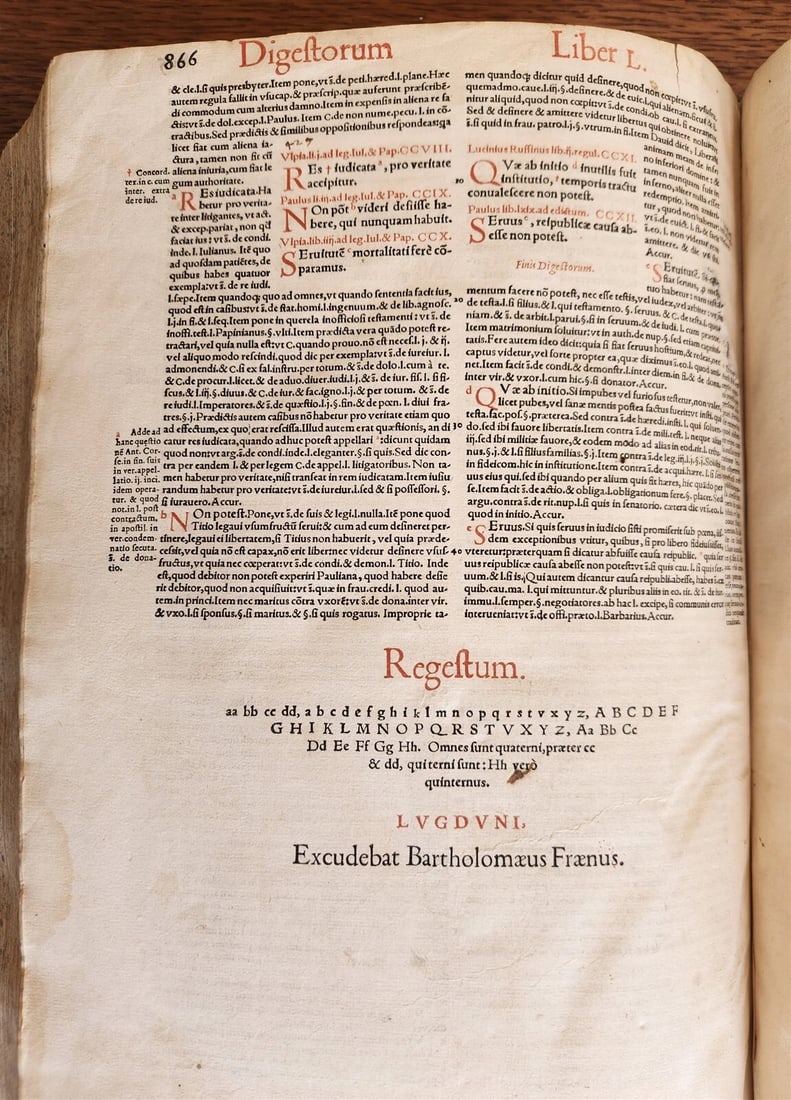 866
Digestorum
Liber L.
& cle.l.si quis presbyter.Item pone,vt ĩ.de peti.hæred.l.plane.Hæc
autem regula fallit in vsucap.& præscrip.quæ auferunt præscribẽ-
di commodum cum alterius damno.Item in expensis in aliena re fa
ctis:vt ĩ.de dol.excep.l.Paulus. Item C.de non nume.pecu.l.in cõ-
tractibus.Sed prædictis & similibus oppositionibus respondeas:ꝗa
licet fiat cum aliena ia-
ctura, tamen non fit cũ
aliena iniuria,cum fiat le
gum authoritate.
† Concord.
ter.in c. cum
inter. extra
de re iud.
a REs iudicata.Ha
betur pro verita-
te inter litigantes, vt act.
& excep.pariat, non qđ
faciat ius: vt ĩ. de condi.
inde.l. Iulianus. Itẽ quo
ad quosdam patiẽtes, de
quibus habes quatuor
exempla:vt ĩ. de re iudi.
l.sæpe.Item quandoq; quo ad omnes,vt quando sententia facit ius,
quod est in casibus:vt ĩ.de stat.homi.l.ingenuum.& de lib.agnosc.
l.j.in fi.& l.seq.Item pone in querela inofficiosi testamenti : vt ĩ. de
inoffi.test.l.Papinianus.§.vlti.Item prædicta vera quãdo potest re-
tractari,vel quia nulla est:vt C.quando prouo.nõ est necess.l. j. & ij.
vel aliquo modo rescindi.quod dic per exempla:vt ĩ.de iureiur. l.
admonendi.& C.si ex fal.instru.per totum.& ĩ.de dolo.l.cum à te.
& C.de procur.l.licet.& de aduo.diuer.iudi.l.j.& ĩ. de iur. fisc. l. si fi-
scus.& l.iij.§.diuus.& C.de iur.& fac.igno.l.j.& per totum. & ĩ. de
re iudi.l.Imperatores.& ĩ.de quæstio.l.j.§.fin.& de pœn.l. diui fra-
tres.§.j.Prædictis autem casibus nõ habetur pro veritate etiam quo
ad effectum,ex quo erat rescissa.Illud autem erat quæstionis, an di
catur res iudicata,quando adhuc potest appellari ªdicunt quidam
quod non:vt arg.ĩ.de condi.inde.l.eleganter.§.si quis.Sed dic con-
tra per eandem l. & per legem C.de appel.l. litigatoribus. Non ta-
men habetur pro veritate,nisi transeat in rem iudicatam.Item iusiu
randum habetur pro veritate:vt ĩ.de iureiur.l.sed & si possessori. §.
si iurauero.Accur.
a Adde ad
hanc quæstio
nẽ Ant. Cor-
se.in sin. suis
in ver.appel-
latio. ij. inci.
idem opera-
tur. & quod
not.in l. post
contractum,
in apostil. in
ver.condem-
natio secuta.
ĩ. de dona-
tio.
b NOn potest.Pone,vt ĩ.de suis & legi.l.nulla.Itẽ pone quod
Titio legaui vsumfructũ serui:& cum ad eum desineret per-
tinere,legaui ei libertatem,si Titius non habuerit, vel quia præde-
cessit,vel quia nõ est capax,nõ erit liber:nec videtur desinere vsus-
fructus,vt quia nec cœperat:vt ĩ.de condi.& demon.l. Titio. Inde
est,quod debitor non potest experiri Pauliana, quod habere desie
rit debitor,quod non acquisiuit:vt ĩ.quæ in frau.credi. l. quod au-
tem.in princi.Item nec maritus cõtra vxorẽ:vt ĩ.de dona.inter vir.
& vxo.l.si sponsus.§.si maritus.& §.si quis rogatus. Improprie ta-
Vlpia.li.j.ad leg.Iul.& Pap.CCVIII.
REs † iudicata ª, pro veritate
accipitur.
Paulus li.iij.ad leg.Iul.& Pap. CCIX.
NOn põt ᵇ videri desiisse ha-
bere, qui nunquam habuit.
Vlpia.lib.iiij.ad leg.Iul.& Pap. CCX.
SEruitutẽ ᶜ mortalitati ferè cõ-
paramus.
men quandoq; dicitur quid desinere,quod non cœpit:vt ĩ. vsufru.
quemadmo.caue.l.iij.§.desinere.& de euic.l.qui alienam.
nitur aliquid,quod non cœpit:vt ĩ.de condi.ob cau.l. si extraneus.
Sed & desinere & amittere videtur libertus qui obtinere noluit:vt
ĩ.si quid in frau. patro.l.j.§.vtrum.in fi.Item Dauid dicit, Liberasti
animam meam de infer
no inferiori domine: &
tamen nunquam fuit in
inferno,
redemptio.
Accur.
Lucinius Ruffinus lib.ij.regul. CCXI.
QVæ ab initio ᵈ inutilis fuit
institutio, † temporis tractu
conualescere non potest.
Paulus lib.lxix.ad edictum. CCXII.
SEruus ᵉ, reipublicæ causa ab-
esse non potest.
Finis Digestorum.
c SEruitutẽ.
mentum facere nõ potest, nec esse testis,vel iudex,vel arbiter:vt ĩ.
de testa.l.si filius.& l.qui testamento. §. seruus.& C. de testa.
niam.& ĩ. de arbit.l.parui.§.si in seruum.& de iudi.l. cum prætor.
Item matrimonium soluitur:vt in auth.de nup.§.sed etiam captiui-
tatis.Fere autem ideo dicit:quia si fiat seruus hostium,& redeat,nec
captus videtur,vel forte propter ea,quæ diximus ĩ.eo.l. quod atti-
net.Item facit ĩ.de condi.& demonstr.l.inter diem.in fi.& de dona.
inter vir.& vxor.l.cum hic.§.si donator.Accur.
d QVæ ab initio.Si impubes vel furiosus testetur,non valet,
licet pubes,vel sanæ mentis postea factus fuerit:vt insti. qui
testa.fac.pos.§.præterea.Sed contra ĩ.de hæredi.insti.l. qui soluen-
do.sed ibi fauore libertatis.Item contra ĩ.de mili.test.l. neque alias
iij.sed ibi militiæ fauore,& eodem modo ad alias in eod.tit.l. titius.
nus.§.j.& l.si filius familias.§.j.Item contra ĩ.de leg.iij.l.j.§.j.Solutio.
in fideicom.hic in institutione.Item contra ĩ.de acqui.hære. l.si fi-
uus eius qui.sed ibi quando per alium quis fit hæres, hic quãdo per
se.Item facit ĩ.de actio.& obliga.l.obligationum fere.§. placet.Sed
argu.contra ĩ.de rit.nup.l.si quis in senatorio. cætera dic vt ĩ.eo.l.
quod in initio.Accur.
e SEruus.Si quis seruus in iudicio sisti promiserit sub pœna, ĩj-
dem exceptionibus vtitur, quibus, si pro libero fideiussisset,
vteretur:præterquam si dicatur abfuisse causa reipublic. ª quia ser-
uus reipublicæ causa abesse non potest:vt ĩ.si quis cau. l. si quis ser-
uum.& l.si is.Qui autem dicantur causa reipubli.abesse, habes ĩ.ex
quib.cau.ma.l.qui mittuntur.& pluribus aliis in eo. tit. & ĩ. de iur.
immu.l.semper.§.negotiatores.ab hac l. excipe, si communis error
interueniat:vt ĩ.de offi.præto.l.Barbarius.Accur.
20
30
40
Regestum.
aa bb cc dd, a b c d e f g h i k l m n o p q r s t v x y z, A B C D E F
G H I K L M N O P Q R S T V X Y Z, Aa Bb Cc
Dd Ee Ff Gg Hh. Omnes sunt quaterni,præter cc
& dd, qui terni sunt: Hh verò
quinternus.
LVGDVNI,
Excudebat Bartholomæus Frænus.